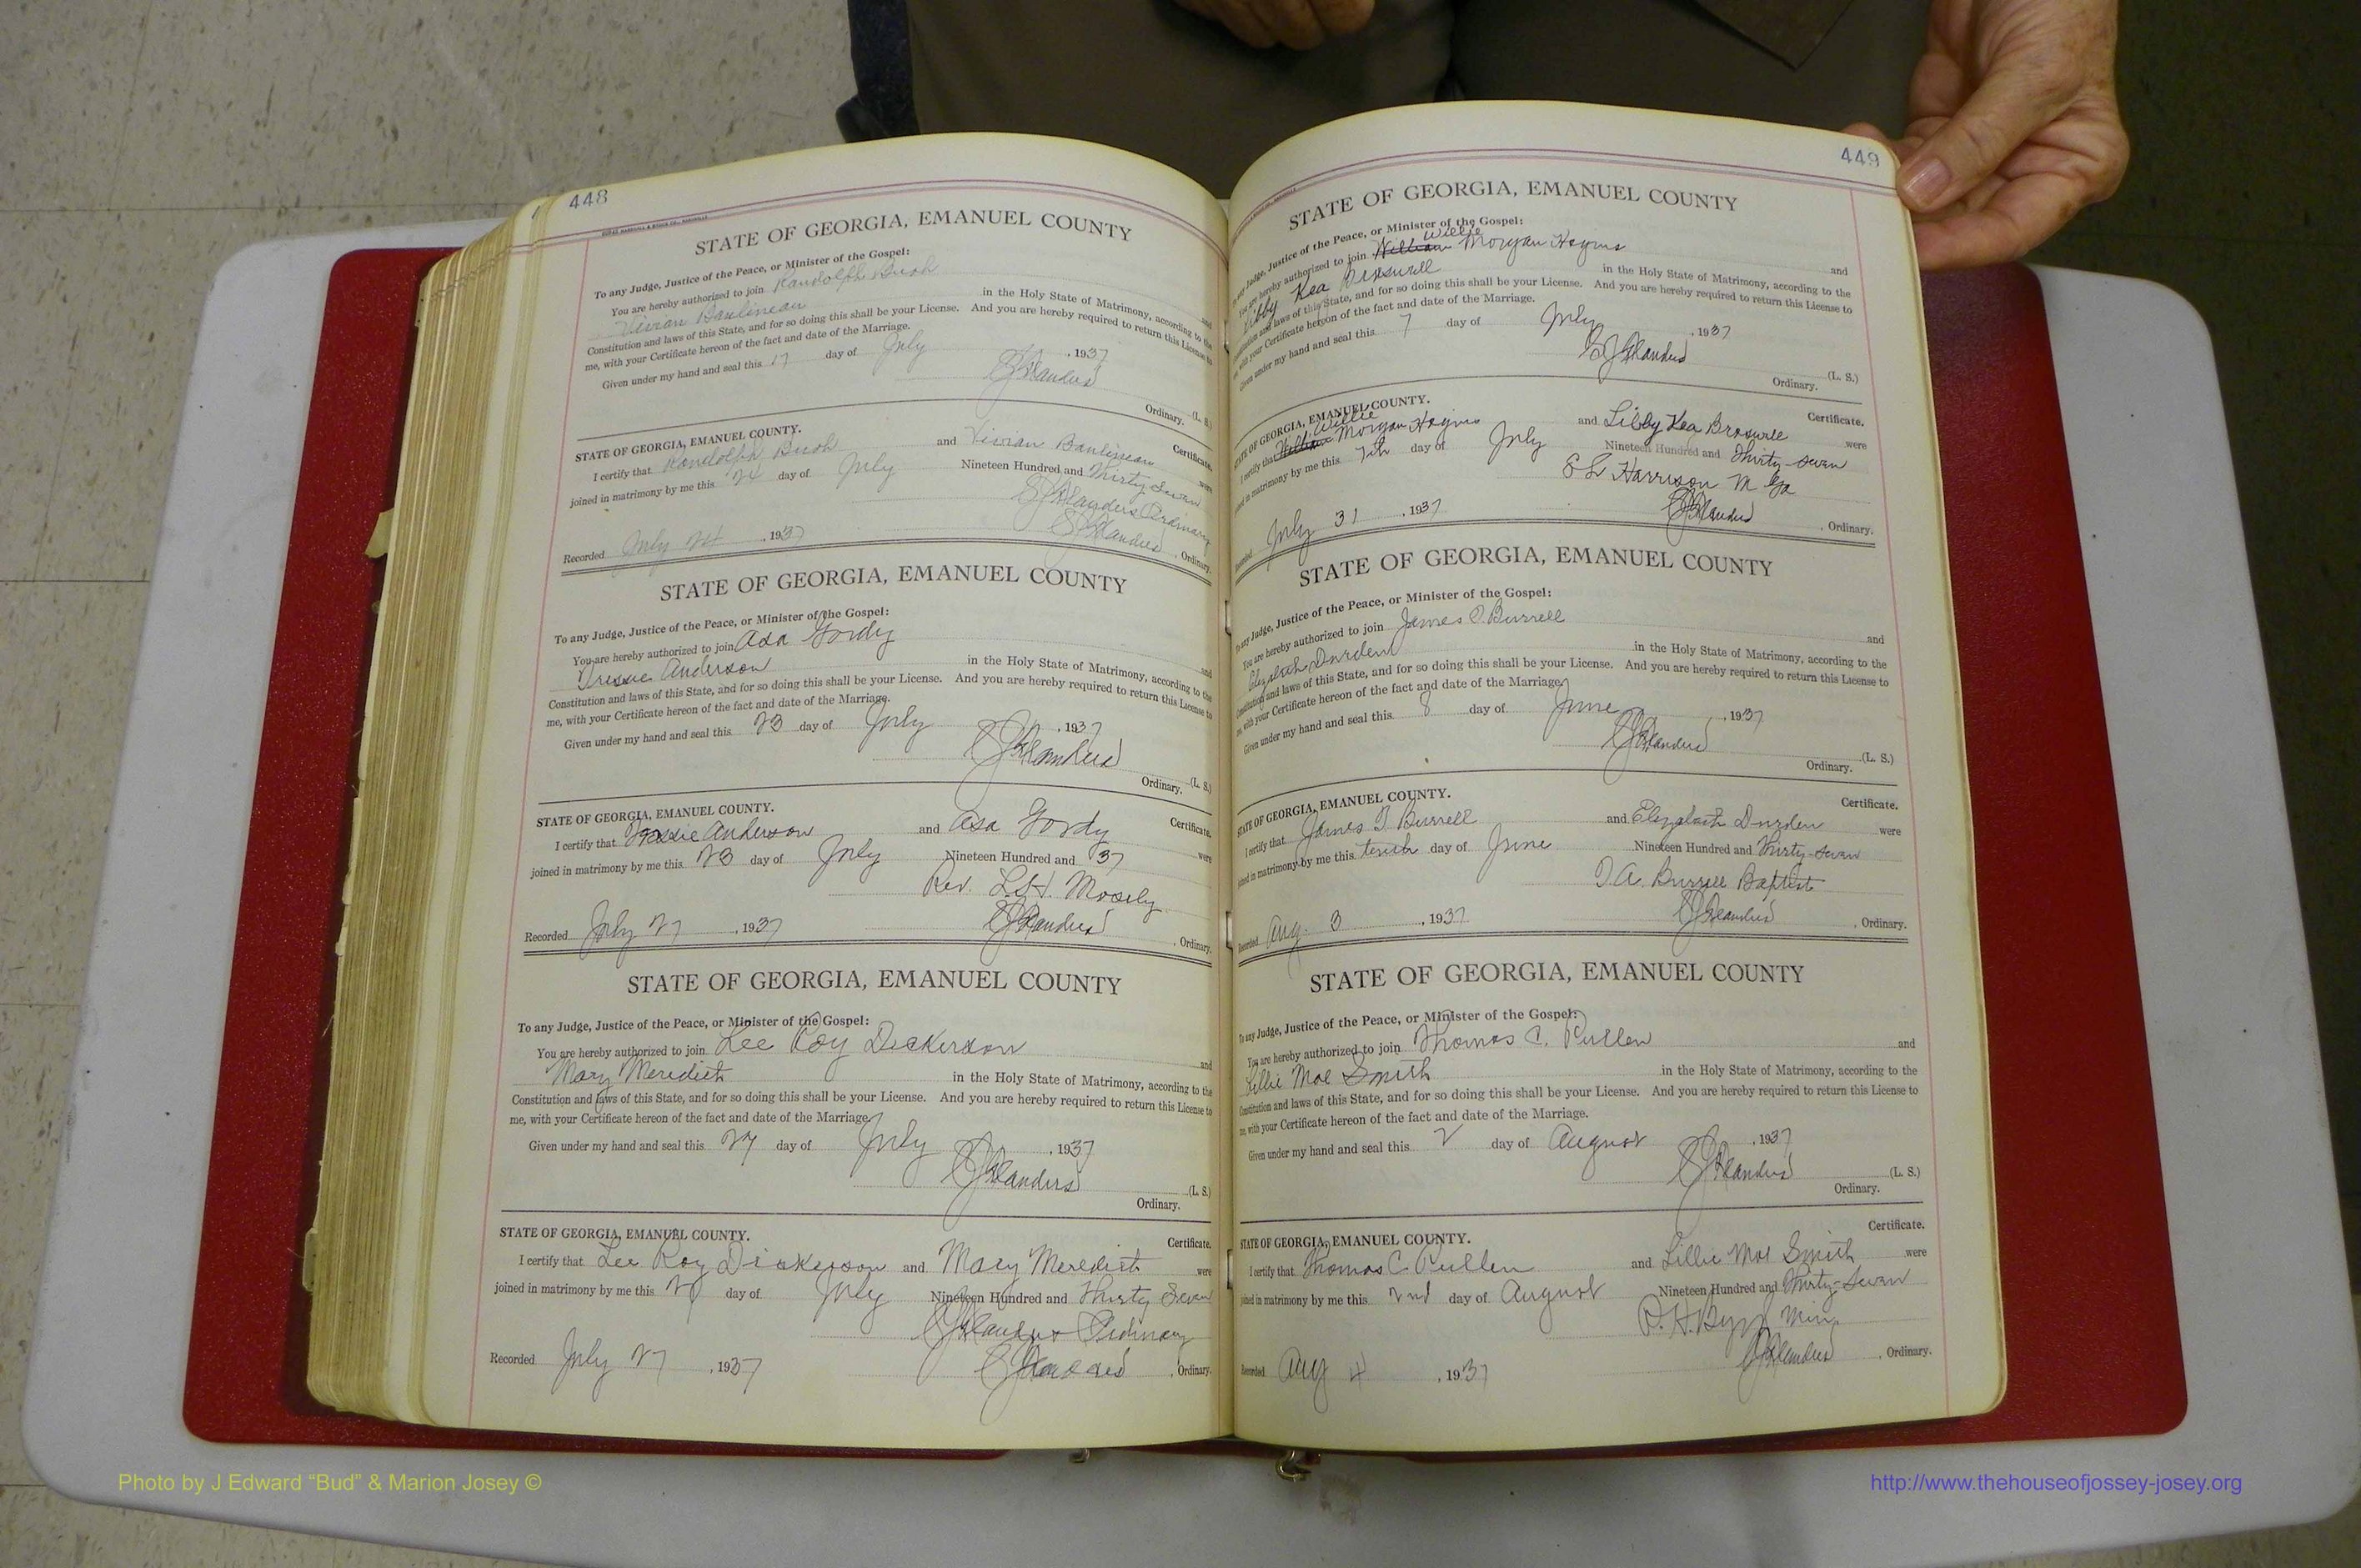 448
STATE OF GEORGIA, EMANUEL COUNTY
To any Judge, Justice of the Peace, or Minister of the Gospel:
You are hereby authorized to join Randolph Bush and
Vivian in the Holy State of Matrimony, according to the
Constitution and laws of this State, and for so doing this shall be your License. And you are hereby required to return this License to
me, with your Certificate hereon of the fact and date of the Marriage.
Given under my hand and seal this 17 day of July, 1937
(L. S.)
Ordinary.
STATE OF GEORGIA, EMANUEL COUNTY. Certificate.
I certify that Randolph Bush and Vivian were
joined in matrimony by me this 24 day of July Nineteen Hundred and Thirty-Seven
Ordinary
Recorded July 24, 1937, Ordinary.
STATE OF GEORGIA, EMANUEL COUNTY
To any Judge, Justice of the Peace, or Minister of the Gospel:
You are hereby authorized to join Asa Gordy and
Anderson in the Holy State of Matrimony, according to the
Constitution and laws of this State, and for so doing this shall be your License. And you are hereby required to return this License to
me, with your Certificate hereon of the fact and date of the Marriage.
Given under my hand and seal this 23 day of July, 1937
(L. S.)
Ordinary.
STATE OF GEORGIA, EMANUEL COUNTY. Certificate.
I certify that Anderson and Asa Gordy were
joined in matrimony by me this 23 day of July Nineteen Hundred and 37
Rev. L. H. Mosely
Recorded July 27, 1937, Ordinary.
STATE OF GEORGIA, EMANUEL COUNTY
To any Judge, Justice of the Peace, or Minister of the Gospel:
You are hereby authorized to join Lee Roy Dickerson and
Mary Meredith in the Holy State of Matrimony, according to the
Constitution and laws of this State, and for so doing this shall be your License. And you are hereby required to return this License to
me, with your Certificate hereon of the fact and date of the Marriage.
Given under my hand and seal this 27 day of July, 1937
(L. S.)
Ordinary.
STATE OF GEORGIA, EMANUEL COUNTY. Certificate.
I certify that Lee Roy Dickerson and Mary Meredith were
joined in matrimony by me this day of July Nineteen Hundred and Thirty Seven
Ordinary
Recorded July 27, 1937, Ordinary.
449
STATE OF GEORGIA, EMANUEL COUNTY
To any Judge, Justice of the Peace, or Minister of the Gospel:
Willie
You are hereby authorized to join William Morgan and
Libby Kea in the Holy State of Matrimony, according to the
Constitution and laws of this State, and for so doing this shall be your License. And you are hereby required to return this License to
me, with your Certificate hereon of the fact and date of the Marriage.
Given under my hand and seal this 7 day of July, 1937
(L. S.)
Ordinary.
STATE OF GEORGIA, EMANUEL COUNTY. Certificate.
Willie
I certify that William Morgan and Libby Kea were
joined in matrimony by me this 7th day of July Nineteen Hundred and Thirty-seven
Harrison M
Recorded July 31, 1937, Ordinary.
STATE OF GEORGIA, EMANUEL COUNTY
To any Judge, Justice of the Peace, or Minister of the Gospel:
You are hereby authorized to join James Burrell and
Elizabeth Durden in the Holy State of Matrimony, according to the
Constitution and laws of this State, and for so doing this shall be your License. And you are hereby required to return this License to
me, with your Certificate hereon of the fact and date of the Marriage.
Given under my hand and seal this 8 day of June, 1937
(L. S.)
Ordinary.
STATE OF GEORGIA, EMANUEL COUNTY. Certificate.
I certify that James Burrell and Elizabeth Durden were
joined in matrimony by me this tenth day of June Nineteen Hundred and Thirty-seven
Burrell Baptist
Recorded Aug. 3, 1937, Ordinary.
STATE OF GEORGIA, EMANUEL COUNTY
To any Judge, Justice of the Peace, or Minister of the Gospel:
You are hereby authorized to join Thomas C. Pullen and
Lillie Mae Smith in the Holy State of Matrimony, according to the
Constitution and laws of this State, and for so doing this shall be your License. And you are hereby required to return this License to
me, with your Certificate hereon of the fact and date of the Marriage.
Given under my hand and seal this 2 day of August, 1937
(L. S.)
Ordinary.
STATE OF GEORGIA, EMANUEL COUNTY. Certificate.
I certify that Thomas C Pullen and Lillie Mae Smith were
joined in matrimony by me this 2nd day of August Nineteen Hundred and Thirty-Seven
Min.
Recorded Aug 4, 1937, Ordinary.
Photo by J Edward “Bud” & Marion Josey ©
http://www.thehouseofjossey-josey.org